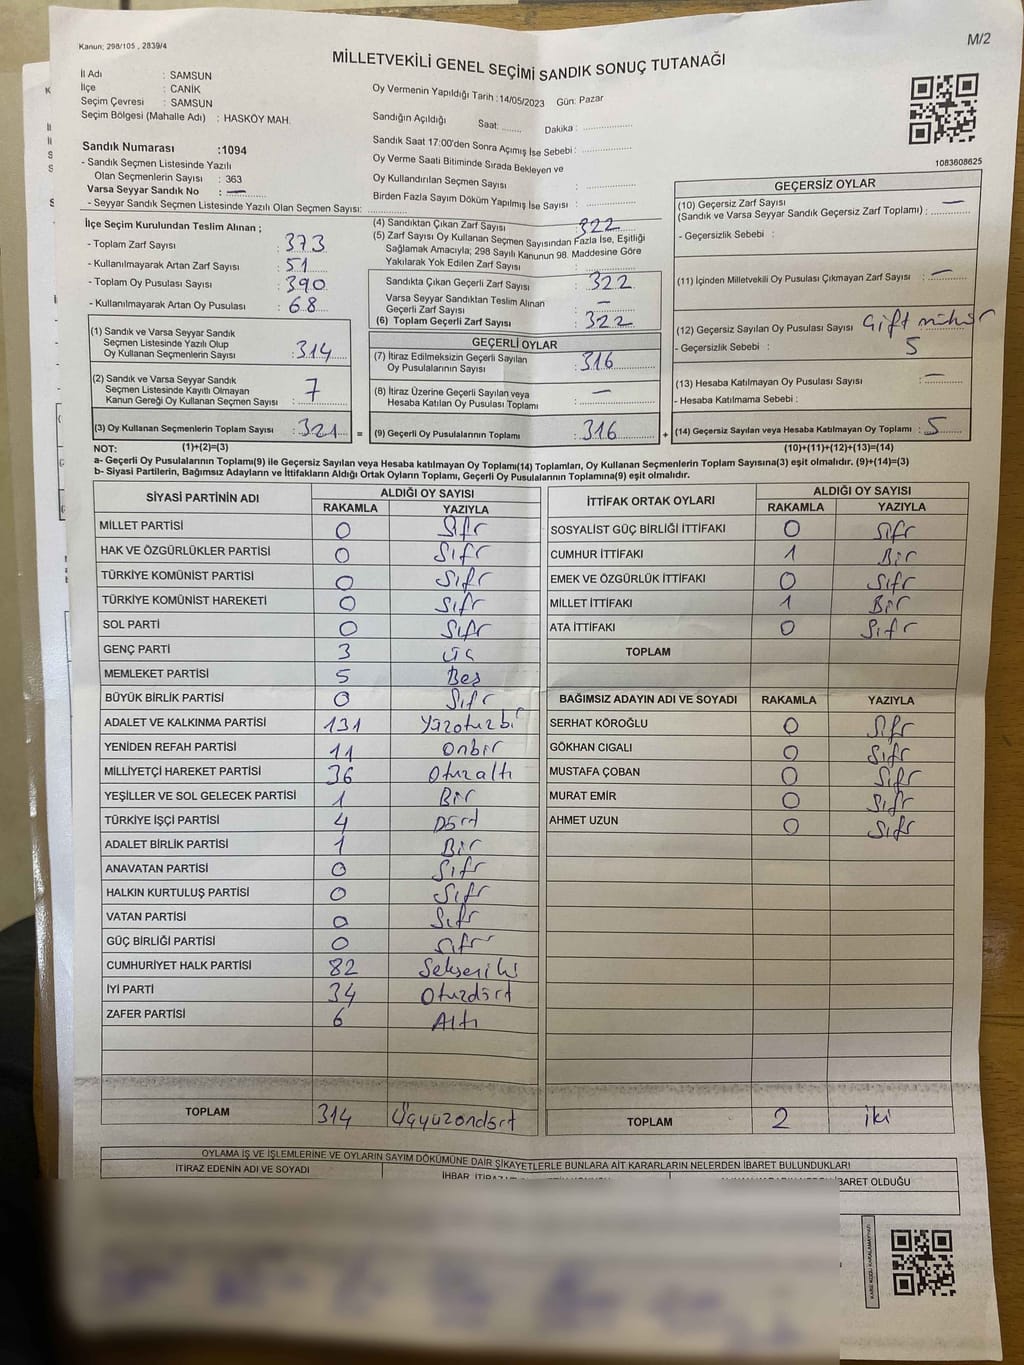 Kanun; 298/105 , 2839/4
M/2
MİLLETVEKİLİ GENEL SEÇİMİ SANDIK SONUÇ TUTANAĞI
İl Adı : SAMSUN
İlçe : CANİK
Seçim Çevresi : SAMSUN
Seçim Bölgesi (Mahalle Adı) : HASKÖY MAH.
Sandık Numarası :1094
- Sandık Seçmen Listesinde Yazılı
Olan Seçmenlerin Sayısı : 363
Varsa Seyyar Sandık No : —
- Seyyar Sandık Seçmen Listesinde Yazılı Olan Seçmen Sayısı:
Oy Vermenin Yapıldığı Tarih :14/05/2023 Gün: Pazar
Sandığın Açıldığı Saat: Dakika :
Sandık Saat 17:00'den Sonra Açımış İse Sebebi :
Oy Verme Saati Bitiminde Sırada Bekleyen ve
Oy Kullandırılan Seçmen Sayısı :
Birden Fazla Sayım Döküm Yapılmış İse Sayısı :
1083608625
İlçe Seçim Kurulundan Teslim Alınan ;
- Toplam Zarf Sayısı : 373
- Kullanılmayarak Artan Zarf Sayısı : 51
- Toplam Oy Pusulası Sayısı : 390
- Kullanılmayarak Artan Oy Pusulası : 68
(1) Sandık ve Varsa Seyyar Sandık
Seçmen Listesinde Yazılı Olup
Oy Kullanan Seçmenlerin Sayısı : 314
(2) Sandık ve Varsa Seyyar Sandık
Seçmen Listesinde Kayıtlı Olmayan
Kanun Gereği Oy Kullanan Seçmen Sayısı : 7
(3) Oy Kullanan Seçmenlerin Toplam Sayısı : 321 =
(4) Sandıktan Çıkan Zarf Sayısı : 322
(5) Zarf Sayısı Oy Kullanan Seçmen Sayısından Fazla İse, Eşitliği
Sağlamak Amacıyla; 298 Sayılı Kanunun 98. Maddesine Göre
Yakılarak Yok Edilen Zarf Sayısı :
Sandıkta Çıkan Geçerli Zarf Sayısı : 322
Varsa Seyyar Sandıktan Teslim Alınan
Geçerli Zarf Sayısı : —
(6) Toplam Geçerli Zarf Sayısı : 322
GEÇERLİ OYLAR
(7) İtiraz Edilmeksizin Geçerli Sayılan
Oy Pusulalarının Sayısı : 316
(8) İtiraz Üzerine Geçerli Sayılan veya
Hesaba Katılan Oy Pusulası Toplamı : —
(9) Geçerli Oy Pusulalarının Toplamı : 316 +
GEÇERSİZ OYLAR
(10) Geçersiz Zarf Sayısı
(Sandık ve Varsa Seyyar Sandık Geçersiz Zarf Toplamı) : —
- Geçersizlik Sebebi :
(11) İçinden Milletvekili Oy Pusulası Çıkmayan Zarf Sayısı : —
(12) Geçersiz Sayılan Oy Pusulası Sayısı Çift mühür
- Geçersizlik Sebebi : 5
(13) Hesaba Katılmayan Oy Pusulası Sayısı : —
- Hesaba Katılmama Sebebi :
(14) Geçersiz Sayılan veya Hesaba Katılmayan Oy Toplamı : 5
NOT: (1)+(2)=(3) (10)+(11)+(12)+(13)=(14)
a- Geçerli Oy Pusulalarının Toplamı(9) ile Geçersiz Sayılan veya Hesaba katılmayan Oy Toplamı(14) Toplamları, Oy Kullanan Seçmenlerin Toplam Sayısına(3) eşit olmalıdır. (9)+(14)=(3)
b- Siyasi Partilerin, Bağımsız Adayların ve İttifakların Aldığı Ortak Oyların Toplamı, Geçerli Oy Pusulalarının Toplamına(9) eşit olmalıdır.
SİYASİ PARTİNİN ADI ALDIĞI OY SAYISI
RAKAMLA YAZIYLA
MİLLET PARTİSİ 0 Sıfır
HAK VE ÖZGÜRLÜKLER PARTİSİ 0 Sıfır
TÜRKİYE KOMÜNİST PARTİSİ 0 Sıfır
TÜRKİYE KOMÜNİST HAREKETİ 0 Sıfır
SOL PARTİ 0 Sıfır
GENÇ PARTİ 3 Üç
MEMLEKET PARTİSİ 5 Beş
BÜYÜK BİRLİK PARTİSİ 0 Sıfır
ADALET VE KALKINMA PARTİSİ 131 Yüzotuzbir
YENİDEN REFAH PARTİSİ 11 Onbir
MİLLİYETÇİ HAREKET PARTİSİ 36 Otuzaltı
YEŞİLLER VE SOL GELECEK PARTİSİ 1 Bir
TÜRKİYE İŞÇİ PARTİSİ 4 Dört
ADALET BİRLİK PARTİSİ 1 Bir
ANAVATAN PARTİSİ 0 Sıfır
HALKIN KURTULUŞ PARTİSİ 0 Sıfır
VATAN PARTİSİ 0 Sıfır
GÜÇ BİRLİĞİ PARTİSİ 0 Sıfır
CUMHURİYET HALK PARTİSİ 82 Sekseniki
İYİ PARTİ 34 Otuzdört
ZAFER PARTİSİ 6 Altı
TOPLAM 314 Üçyüzondört
İTTİFAK ORTAK OYLARI ALDIĞI OY SAYISI
RAKAMLA YAZIYLA
SOSYALİST GÜÇ BİRLİĞİ İTTİFAKI 0 Sıfır
CUMHUR İTTİFAKI 1 Bir
EMEK VE ÖZGÜRLÜK İTTİFAKI 0 Sıfır
MİLLET İTTİFAKI 1 Bir
ATA İTTİFAKI 0 Sıfır
TOPLAM
BAĞIMSIZ ADAYIN ADI VE SOYADI RAKAMLA YAZIYLA
SERHAT KÖROĞLU 0 Sıfır
GÖKHAN CIGALI 0 Sıfır
MUSTAFA ÇOBAN 0 Sıfır
MURAT EMİR 0 Sıfır
AHMET UZUN 0 Sıfır
TOPLAM 2 İki
OYLAMA İŞ VE İŞLEMLERİNE VE OYLARIN SAYIM DÖKÜMÜNE DAİR ŞİKAYETLERLE BUNLARA AİT KARARLARIN NELERDEN İBARET BULUNDUKLARI
İTİRAZ EDENİN ADI VE SOYADI
İBARET OLDUĞU